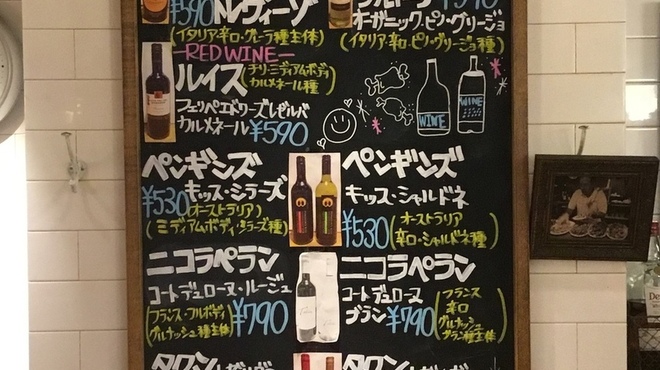 ¥590 ルヴィーゾ
(イタリア・辛口・グレーラ種主体)
オーガニック・ピノ・グリージョ
(イタリア・辛口・ピノ・グリージョ種)
-RED WINE-
ルイス
(チリ・ミディアムボディ
カルメネール種)
フェリペエドワーズレゼルバ
カルメネール ¥590
WINE
WINE
ペンギンズ
¥530 キッス・シラーズ
(オーストラリア)
(ミディアムボディ・シラーズ種)
ペンギンズ
キッス・シャルドネ
¥530
(オーストラリア
辛口・シャルドネ種)
ニコラペラン
コートデュローヌ・ルージュ
(フランス・フルボディ
グルナッシュ種主体)
¥790
ニコラペラン
コートデュローヌ
ブラン ¥790
(フランス
辛口
グルナッシュ
ブラン種主体)